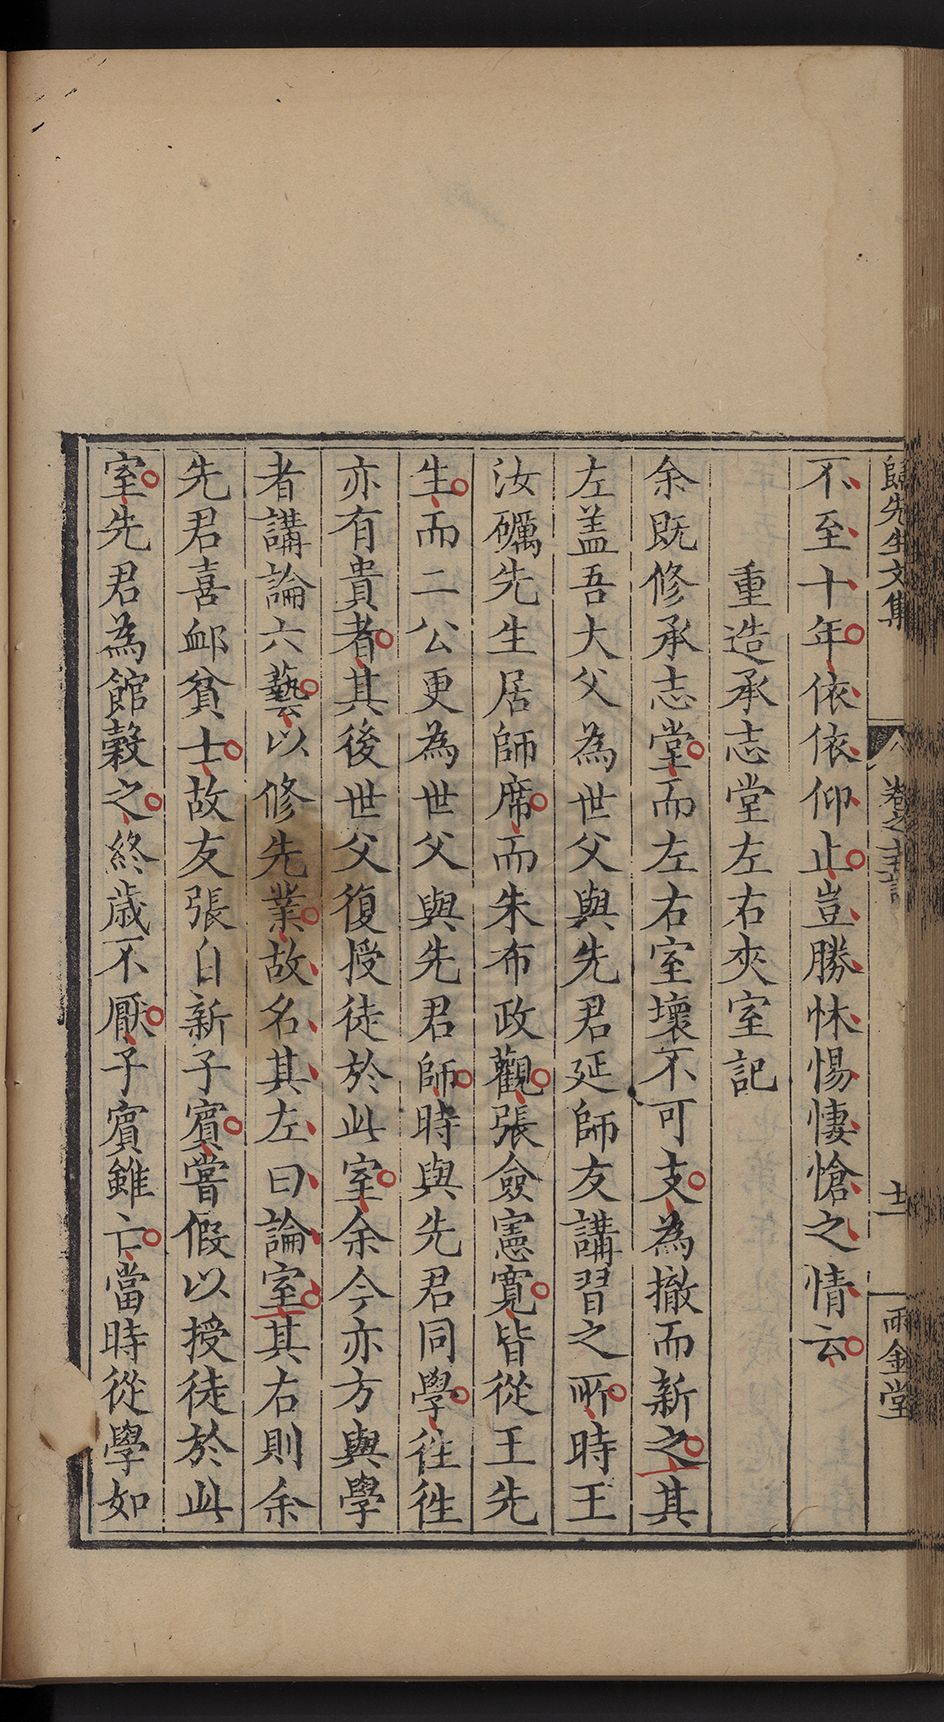 歸先生文集
卷之
雨金堂
不至十年依依仰止豈勝怵惕悽愴之情云
重造承志堂左右夾室記
余既修承志堂而左右室壞不可支為撤而新之其
左蓋吾大父為世父與先君延師友講習之所時王
汝礪先生居師席而朱布政觀張僉憲寬皆從王先
生而二公更為世父與先君師時與先君同學往往
亦有貴者其後世父復授徒於此室余今亦方與學
者講論六藝以修先業故名其左曰論室其右則余
先君喜卹貧士故友張自新子賓嘗假以授徒於此
室先君為館穀之終歲不厭子賓雖亡當時從學如